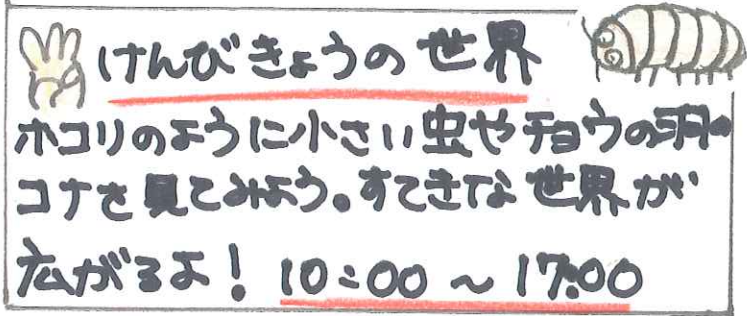 けんびきょうの世界
ホコリのように小さい虫やチョウの羽の
コナを見てみよう。すてきな世界が
広がるよ! 10:00 ~ 17:00